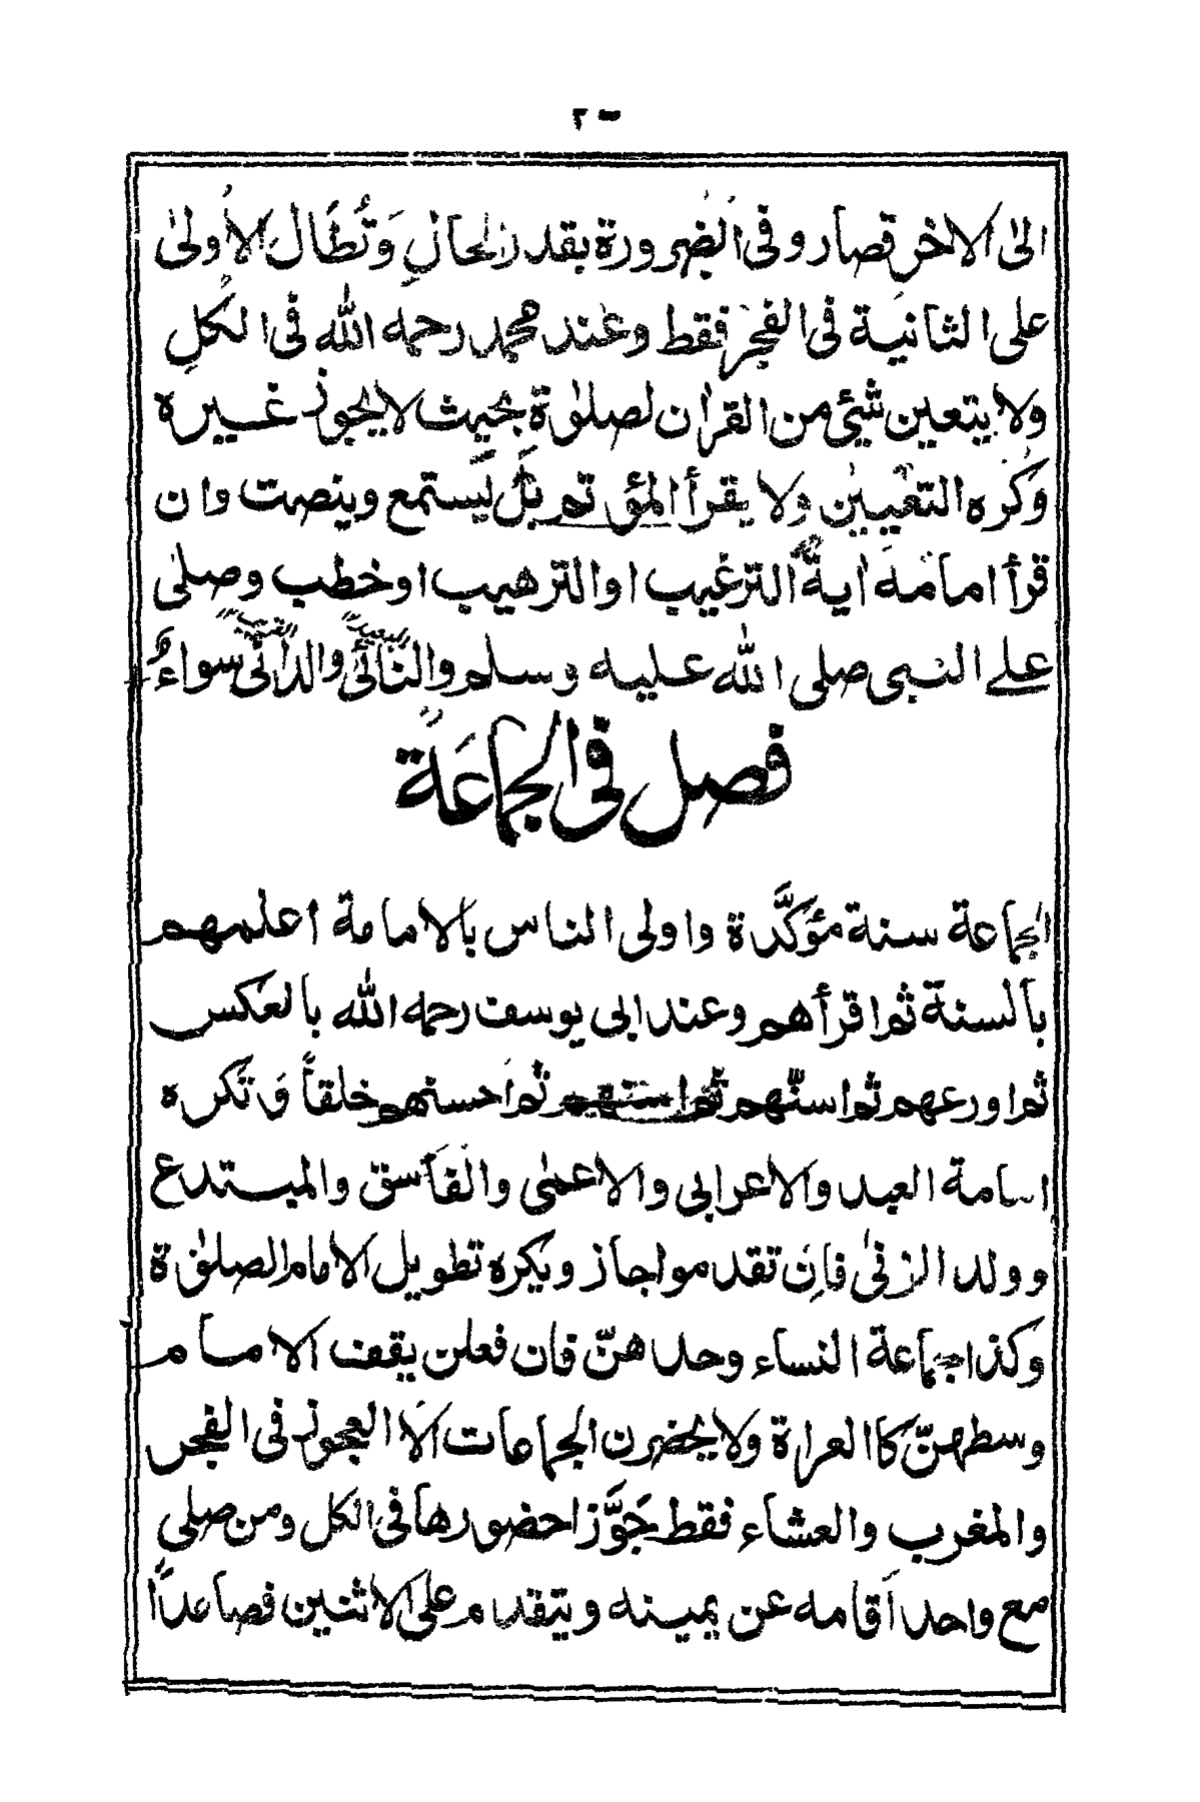 الیٰ الاٰخر قصار و فی الضرورة بقدر الحالِ وَتُطَال الاُولیٰ
علی الثانیة فی الفجر فقط وعند محمد رحمه الله فی الکلِ
ولا یتعین شیئی من القراٰن لصلوٰة بحیث لا یجوز غیره
وَکُره التعیین ولا یقرأ المؤتم بل یَستمع وینصت وان
قرأ امامه اٰیةَ الترغیب او الترهیب او خطب وصلیٰ
علے النبی صلی الله علیه وسلم والنّائی والدانی سواءٌ
البعید
القریب
فصل فی الجماعَة
الجماعة سنة مؤکَّدة واولی الناس بالامامة أعلمهم
بالسنة ثم اقرأهم وعند ابی یوسف رحمه الله بالعکس
ثم اورعهم ثم اسنّهم ثم احسنهم خلقاً وَتکره
امامة العبد والاعرابی والاعمیٰ والفاسق والمبتدع
وولد الزنیٰ فاِن تقدموا جاز ویکره تطویل الامام الصلوٰة
وکذا جماعة النساء وحدهنّ فان فعلن یقف الامام
وسطهنّ کالعراة ولا یحضرن الجماعات اَلا العجوز فی الفجر
والمغرب والعشاء فقط جَوَّزا حضورها فی الکل ومن صلی
مع واحد اَقامه عن یمینه ویتقدم علی الاثنین فصاعداً